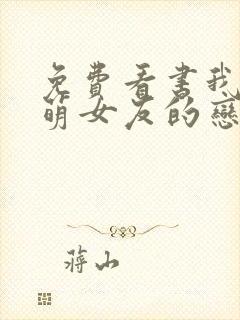 免費看書我
萌女友的戀
蔣山